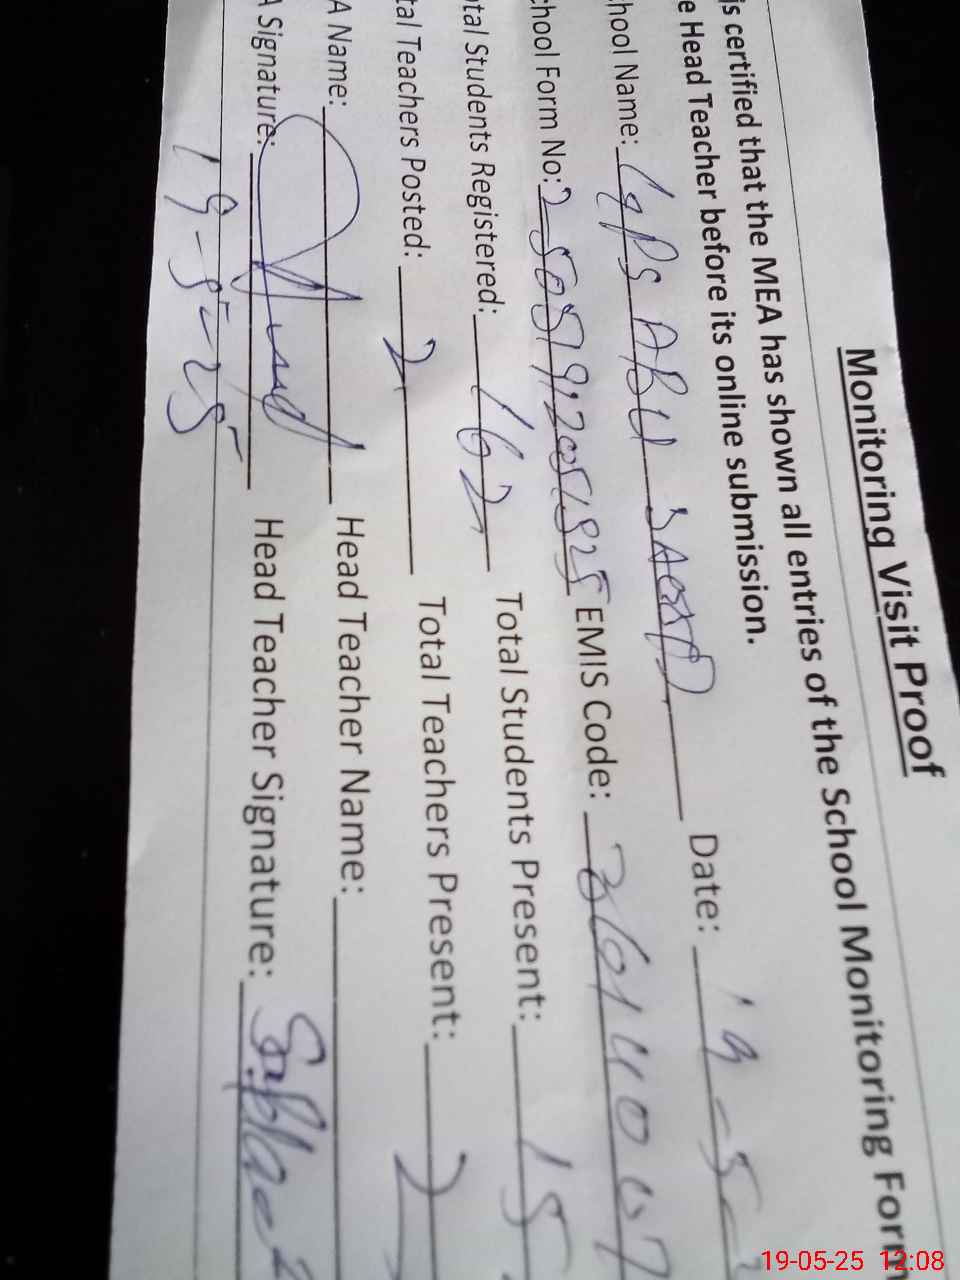 Monitoring Visit Proof
is certified that the MEA has shown all entries of the School Monitoring Form
e Head Teacher before its online submission.
hool Name: GPS ABU SAEED Date: 19-5-
chool Form No: EMIS Code: 36011007
otal Students Registered: 162 Total Students Present: 15
tal Teachers Posted: 2 Total Teachers Present: 2
A Name: Head Teacher Name:
A Signature: Head Teacher Signature:
19-5-25
19-05-25 12:08